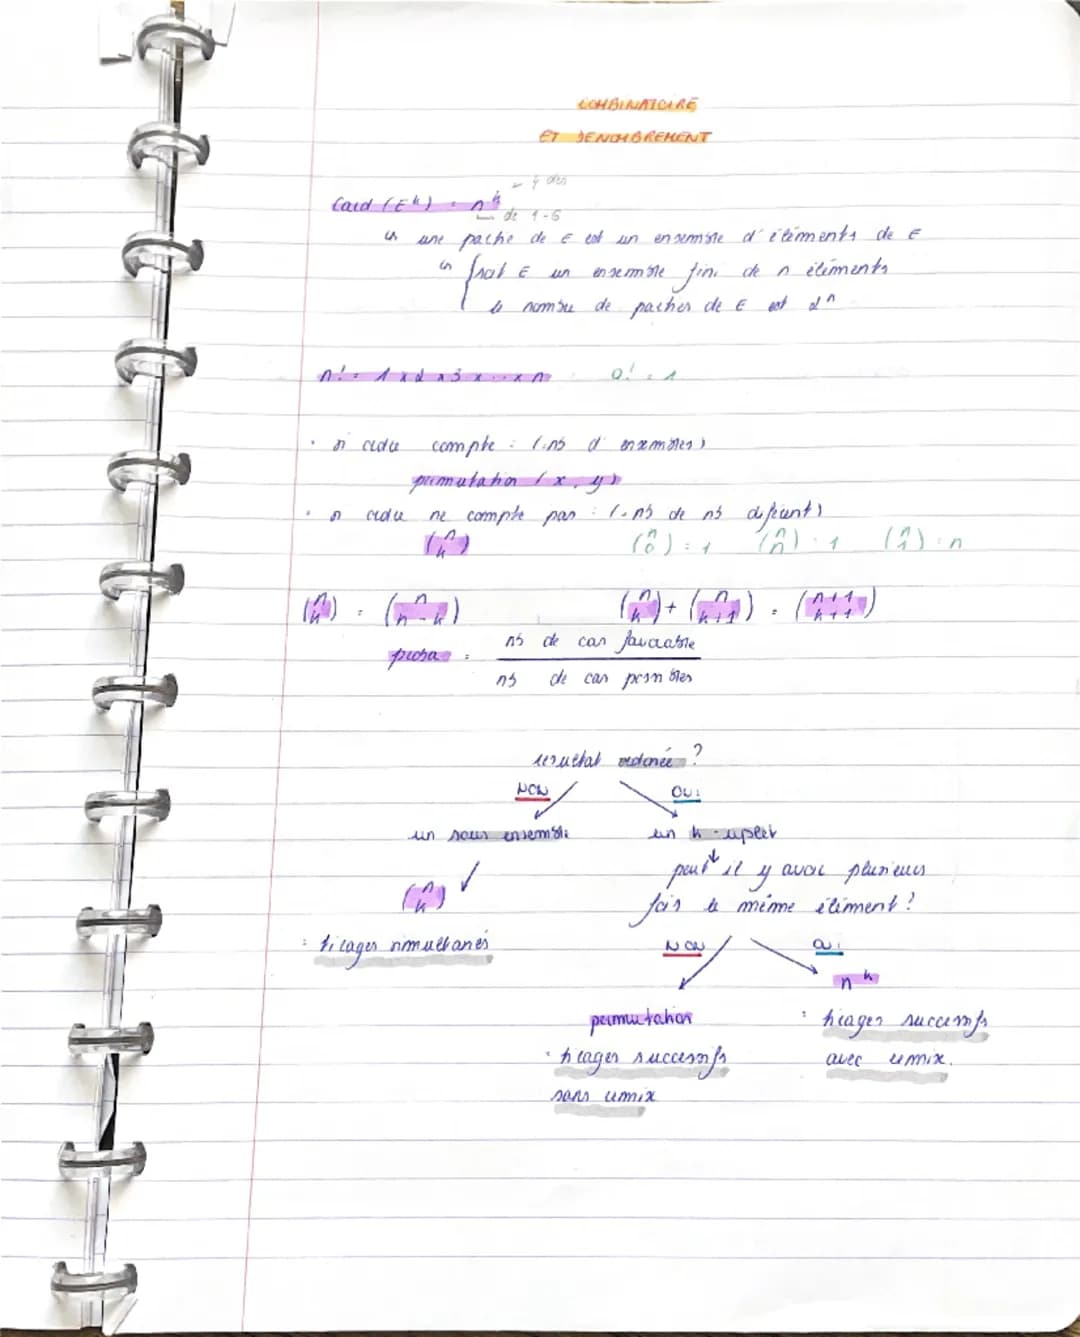 COMBINATOIRE
ET DENOMBREMENT
Card (E^k) = n^k → 4 dés
de 1-6
↳ une partie de E est un ensemble d'éléments de E
↳ { soit E un ensemble fini de n éléments
le nombre de parties de E est 2^n
n! = 1 x 2 x 3 x ... x n 0! = 1
• si ordre compte : (nb d'ensembles)
permutation (x, y)
• si ordre ne compte pas : (nb de nb différents)
(n k) (n 0) = 1 (n n) = 1 (n 1) = n
(n k) = (n n-k) (n k) + (n k+1) = (n+1 k+1)
proba = nb de cas favorable
nb de cas possibles
résultat ordonée ?
NON OUI
un sous ensemble un k-uplet
peut il y avoir plusieurs
(n k) fois le même élément ?
= tirages simultanés NON OUI
n^k
permutation : tirages successifs
: tirages successifs avec remix.
sans remix